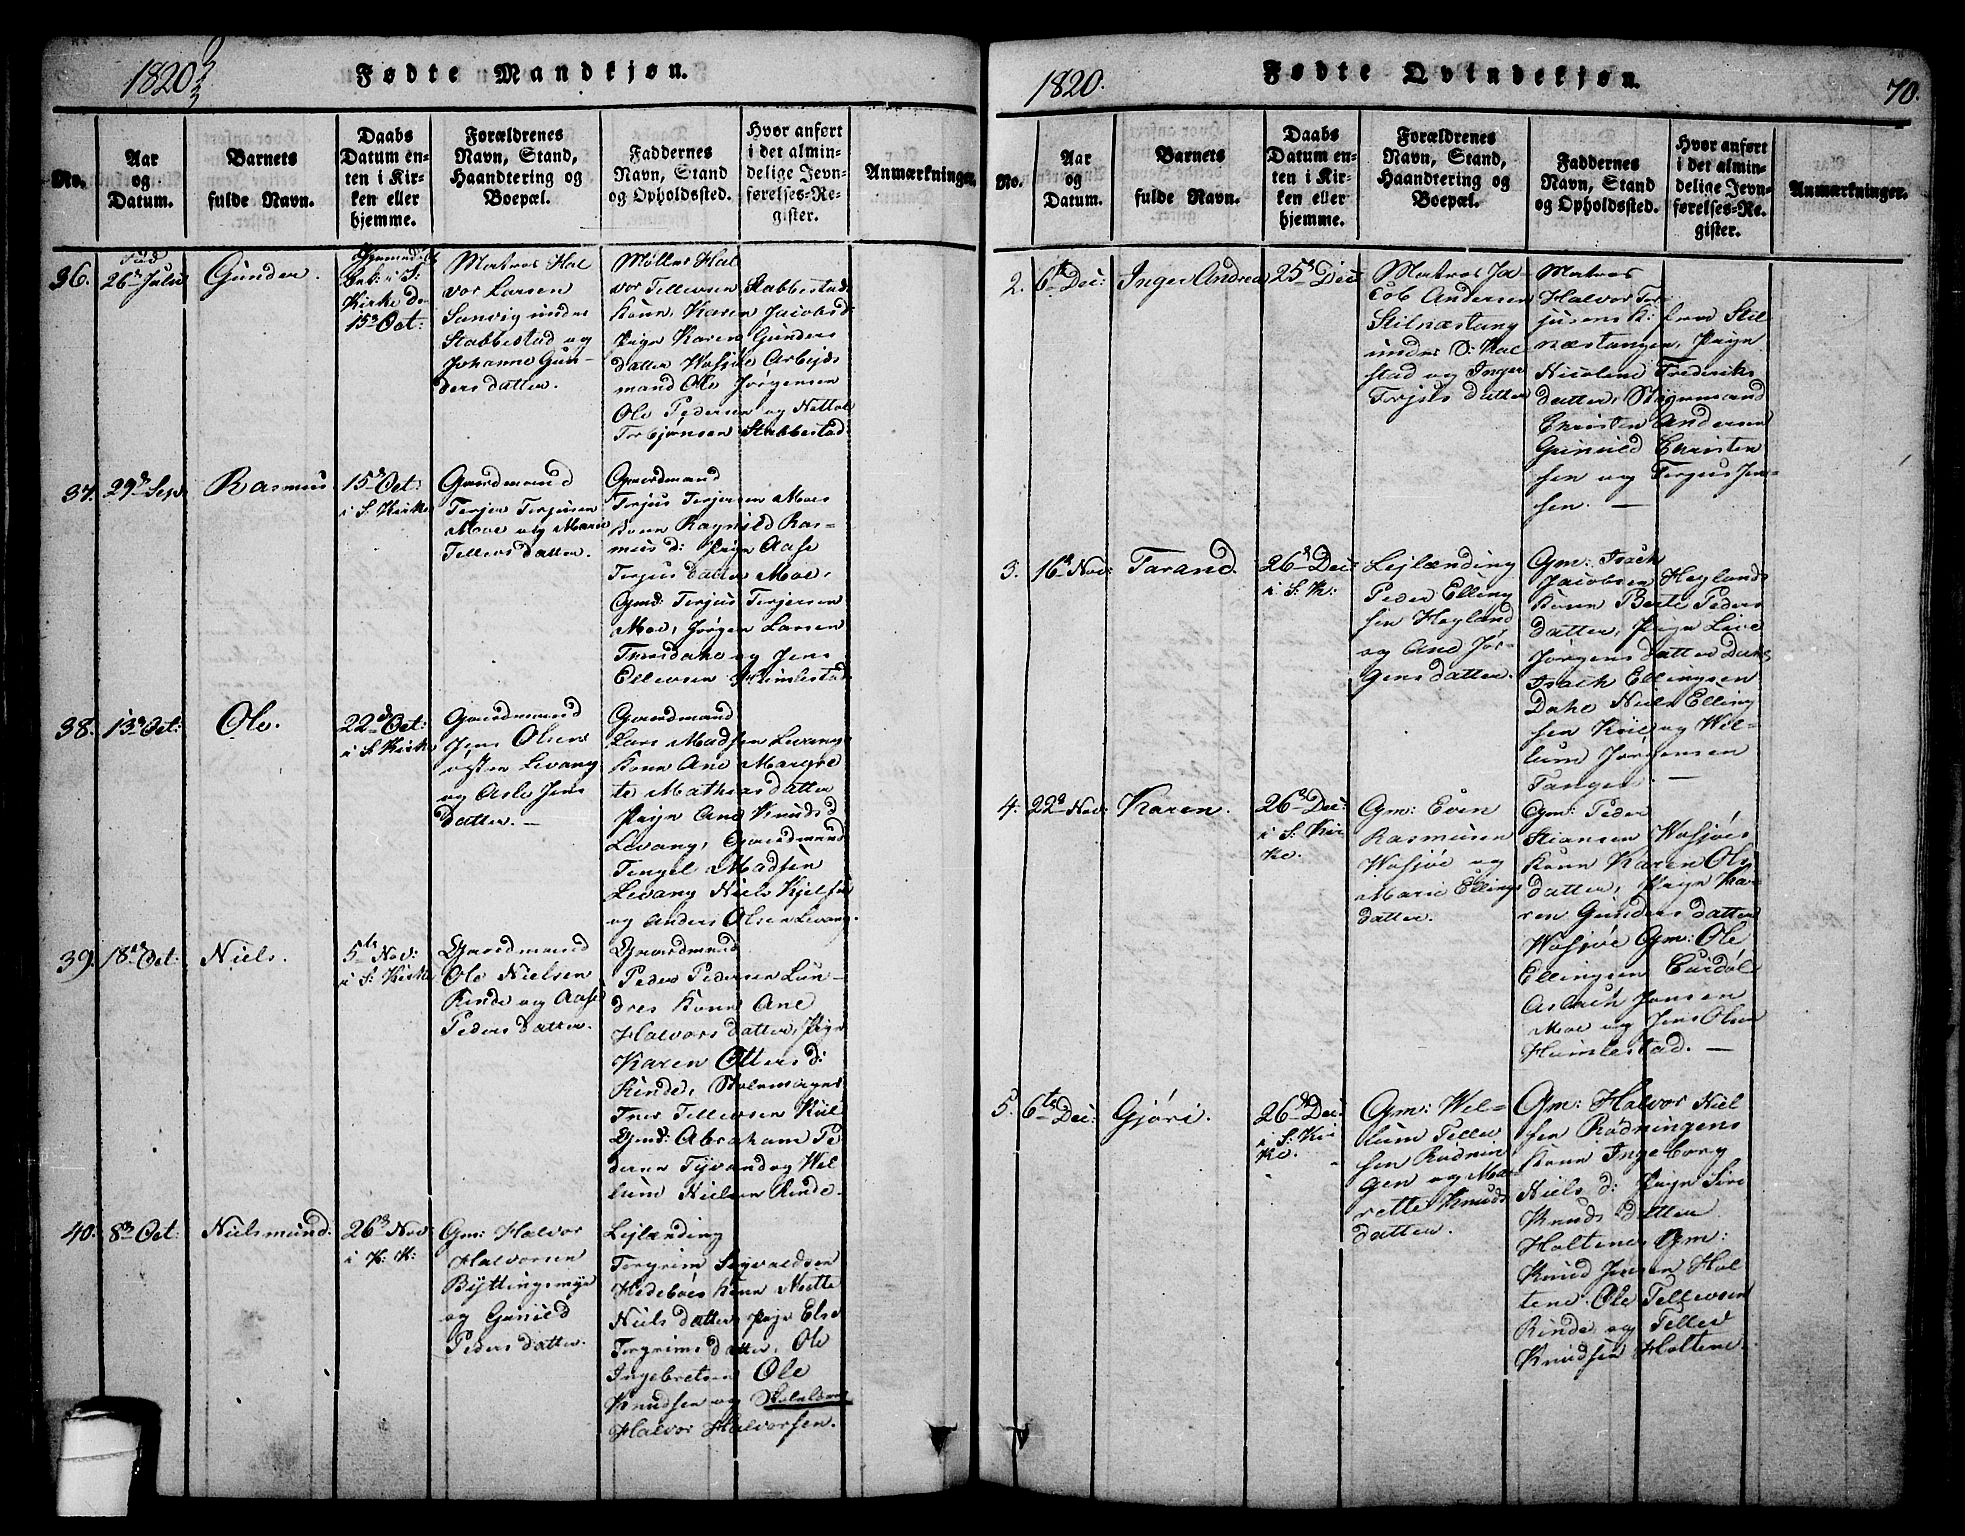 1820
Fødte Mandkjøn.
No.
Aar
og
Datum.
Barnets
fulde Navn.
Daabs
Datum en-
ten i Kir-
ken eller
hjemme.
Forældrenes
Navn, Stand,
Haandtering og
Boepæl.
Faddernes
Navn, Stand
og Opholdssted.
Hvor anført
i det almin-
delige Jevn-
førelses-Re-
gister.
Anmærkninger.
36.
26 Julii
Gunder.
i S:
Kirke d.
15 Oct:
Matros Hal
vor Larsen
Sanvig under
Stabbestad og
Johanne Gun-
ders datter.
Møller Hal
vor Tellevsen Stabbestad
Kone Karen Jacobsd
Pige Karen Gunders
datter Wafjøe Arbejds
mand Ole Jørgensen
Ole Pedersen og Nettol
Torbjønsen Stabbestad
37.
29 Sep
Rasmus
15 Oct:
i S: Kirke
Gaardmand
Terjer Terjusen
Moe og Marie
Tellevs datter.
Gaardmand
Terjus Terjersen Moes
Kone Ragnild Ras-
mus d: Pige Aase
Terjus datter Moe,
Gmd: Terjus Terjersen
Moe, Jørgen Larsen
Thorsdahl og Jens
Ellevsen Humlestad
38.
13 Oct:
Ole.
22 Oct:
i S Kirke
Gaardmand
Jens Olsen
østen Levang
og Asle Jens
datter. —
Gaardmand
Lars Madsen Levangs
Kone Ane Margre
te Mathias datter
Pige Ane Knuds d
Levang, Gaardmand
Tengel Madsen
Levang Niels Kjelsen
og Anders Olsen Levang.
39.
18 Oct:
Niels.
5te Nov:
i S: Kirke
Gaardmand
Ole Nielsen
Rinde og Aase
Peders datter.
Gaardmand
Peder Pedersen Lun-
dres Kone Ane
Halvors datter, Pige
Karen Otters d:
Rinde, Skolemager
Tnes Tellevsen Kiil
Gmd: Abraham Pe
dersen Tyvand og Wel
lum Nielsen Rinde.
40.
8 Oct:
Nielsmund.
26 Nov
i K: K:
Gm: Halvor
Halvorsen
Byttingsmyr
og Gunild
Peders datter.
Lejlænding
Torgrim Sigvaldsen
Hedeboes Kone Mette
Niels datter, Pige Else
Torgrims datter, Ole
Ingebretsen Ole
Knudsen og
Halvor Halvorsen.
1820.
Fødte Qvindekjøn.
70.
No.
Aar
og
Datum.
Barnets
fulde Navn.
Daabs
Datum en-
ten i Kir-
ken eller
hjemme.
Forældrenes
Navn, Stand,
Haandtering og
Boepæl.
Faddernes
Navn, Stand
og Opholdssted.
Hvor anført
i det almin-
delige Jevn-
førelses-Re.
gister.
Anmærkninger.
2.
6te Dec:
Inger Andrea
25 Dec
Matros Ja
cob Andersen
Stilnæstang
under S: Kal
stad og Inger
Terjus datter
Matros
Halvor Ter
jusens K: fra Stil
næstangen, Pige
Nicolene Frederiks
datter, Styrmand
Christen Andersen
Gunild Christen
sen og Terjus Jen-
sen. —
3.
16 Nov:
Tarand.
26 Dec
i S: K:
Lejlænding
Peder Elling
sen Heyland
og Ane Jør-
gensdatter.
Gm: Isach
Jacobsen Heylands
Kone Berte Peders
datter, Pige Live
Jørgens datter Dahl
Isach Ellingsen
Dahl Niels Elling
sen Kiil og Wil-
lum Jørgensen
Tangen. —
4.
22 Nov:
Karen.
26 Dec:
i S: Kir
ke.
Gm: Even
Rasmusen
Wafjøe og
Marie Ellings
datter.
Gm: Peder
Stiansen Wafjøes
Kone Karen Ols
datter, Pige Ka-
ren Gunders datter
Wafjøe Gm: Ole
Ellingsen Eurdøl
Aslach Jansen
Moe og Jens Olsen
Humlestad. —
5.
6te Dec:
Gjøri.
26 Dec
i S: Kir
ke.
Gm: Wel-
lum Tellev
sen Rødnin
gen og Ma-
rette Knuds
datter.
Gm: Halvor Niel
sen Rødningens
Kone Ingeborg
Niels d: Pige Siri
Knuds datter
Holtene Gm:
Knud Jensen Hol
tene. Ole Tellevsen
Rinde og Tellev
Knudsen Holtene.